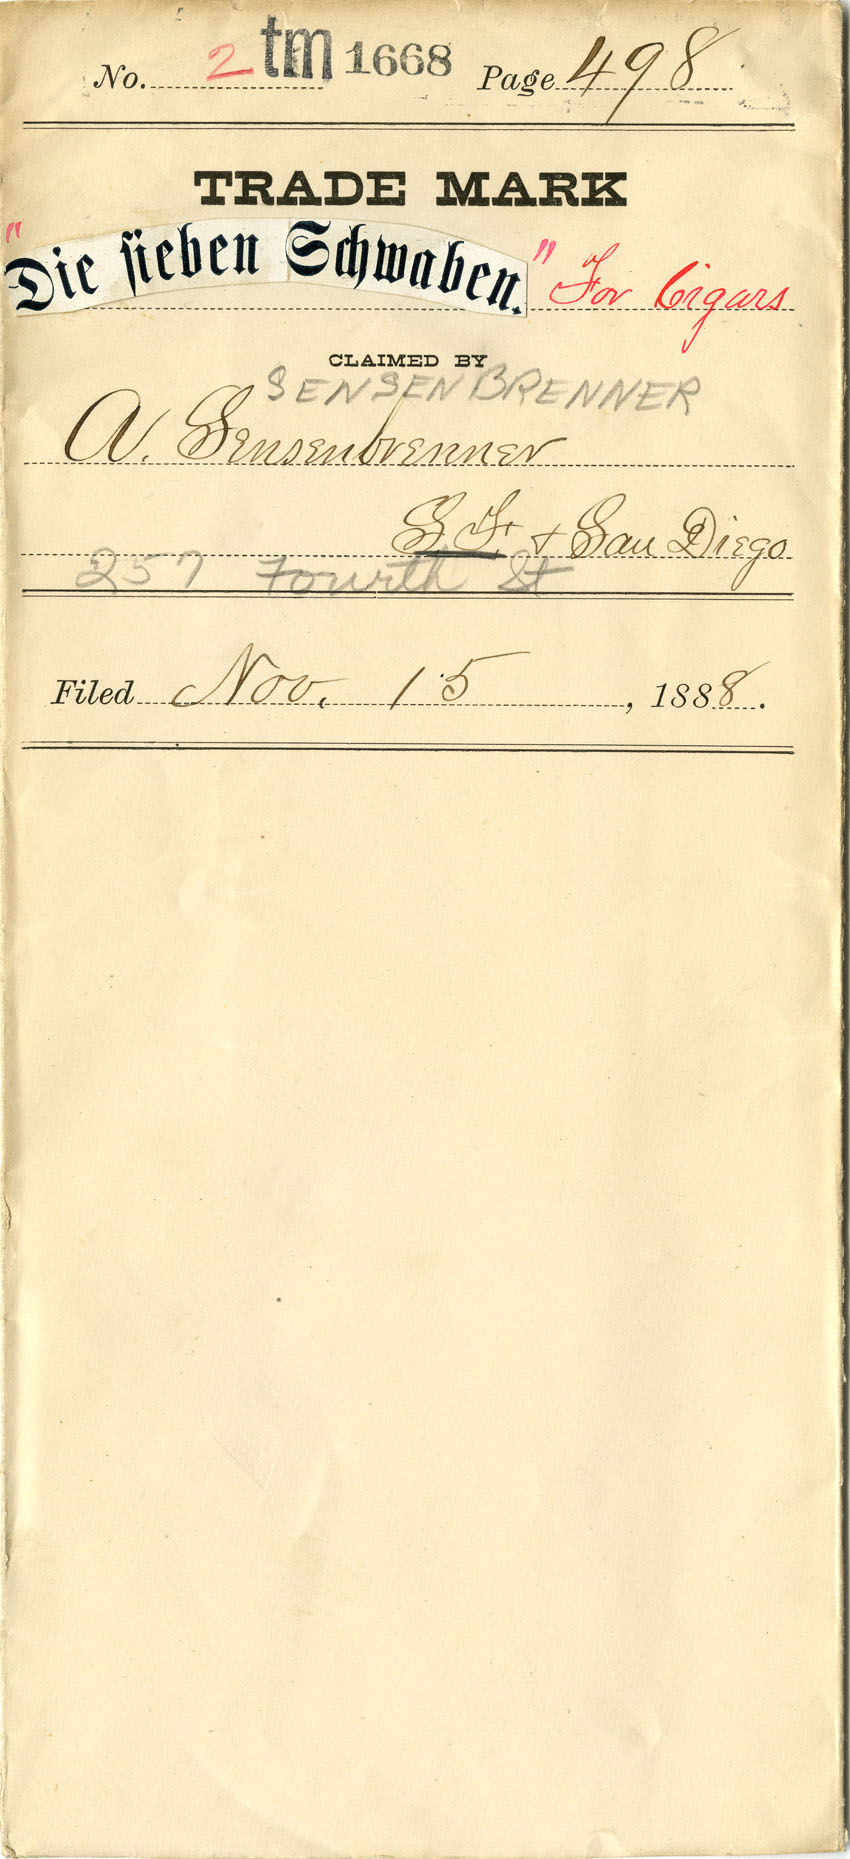 No. 2 tm 1668 Page 498
TRADE MARK
"Die sieben Schwaben." For Cigars
CLAIMED BY
SENSENBRENNER
A. Sensenbrenner
S.F. & San Diego
257 Fourth St
Filed Nov. 15, 1888.